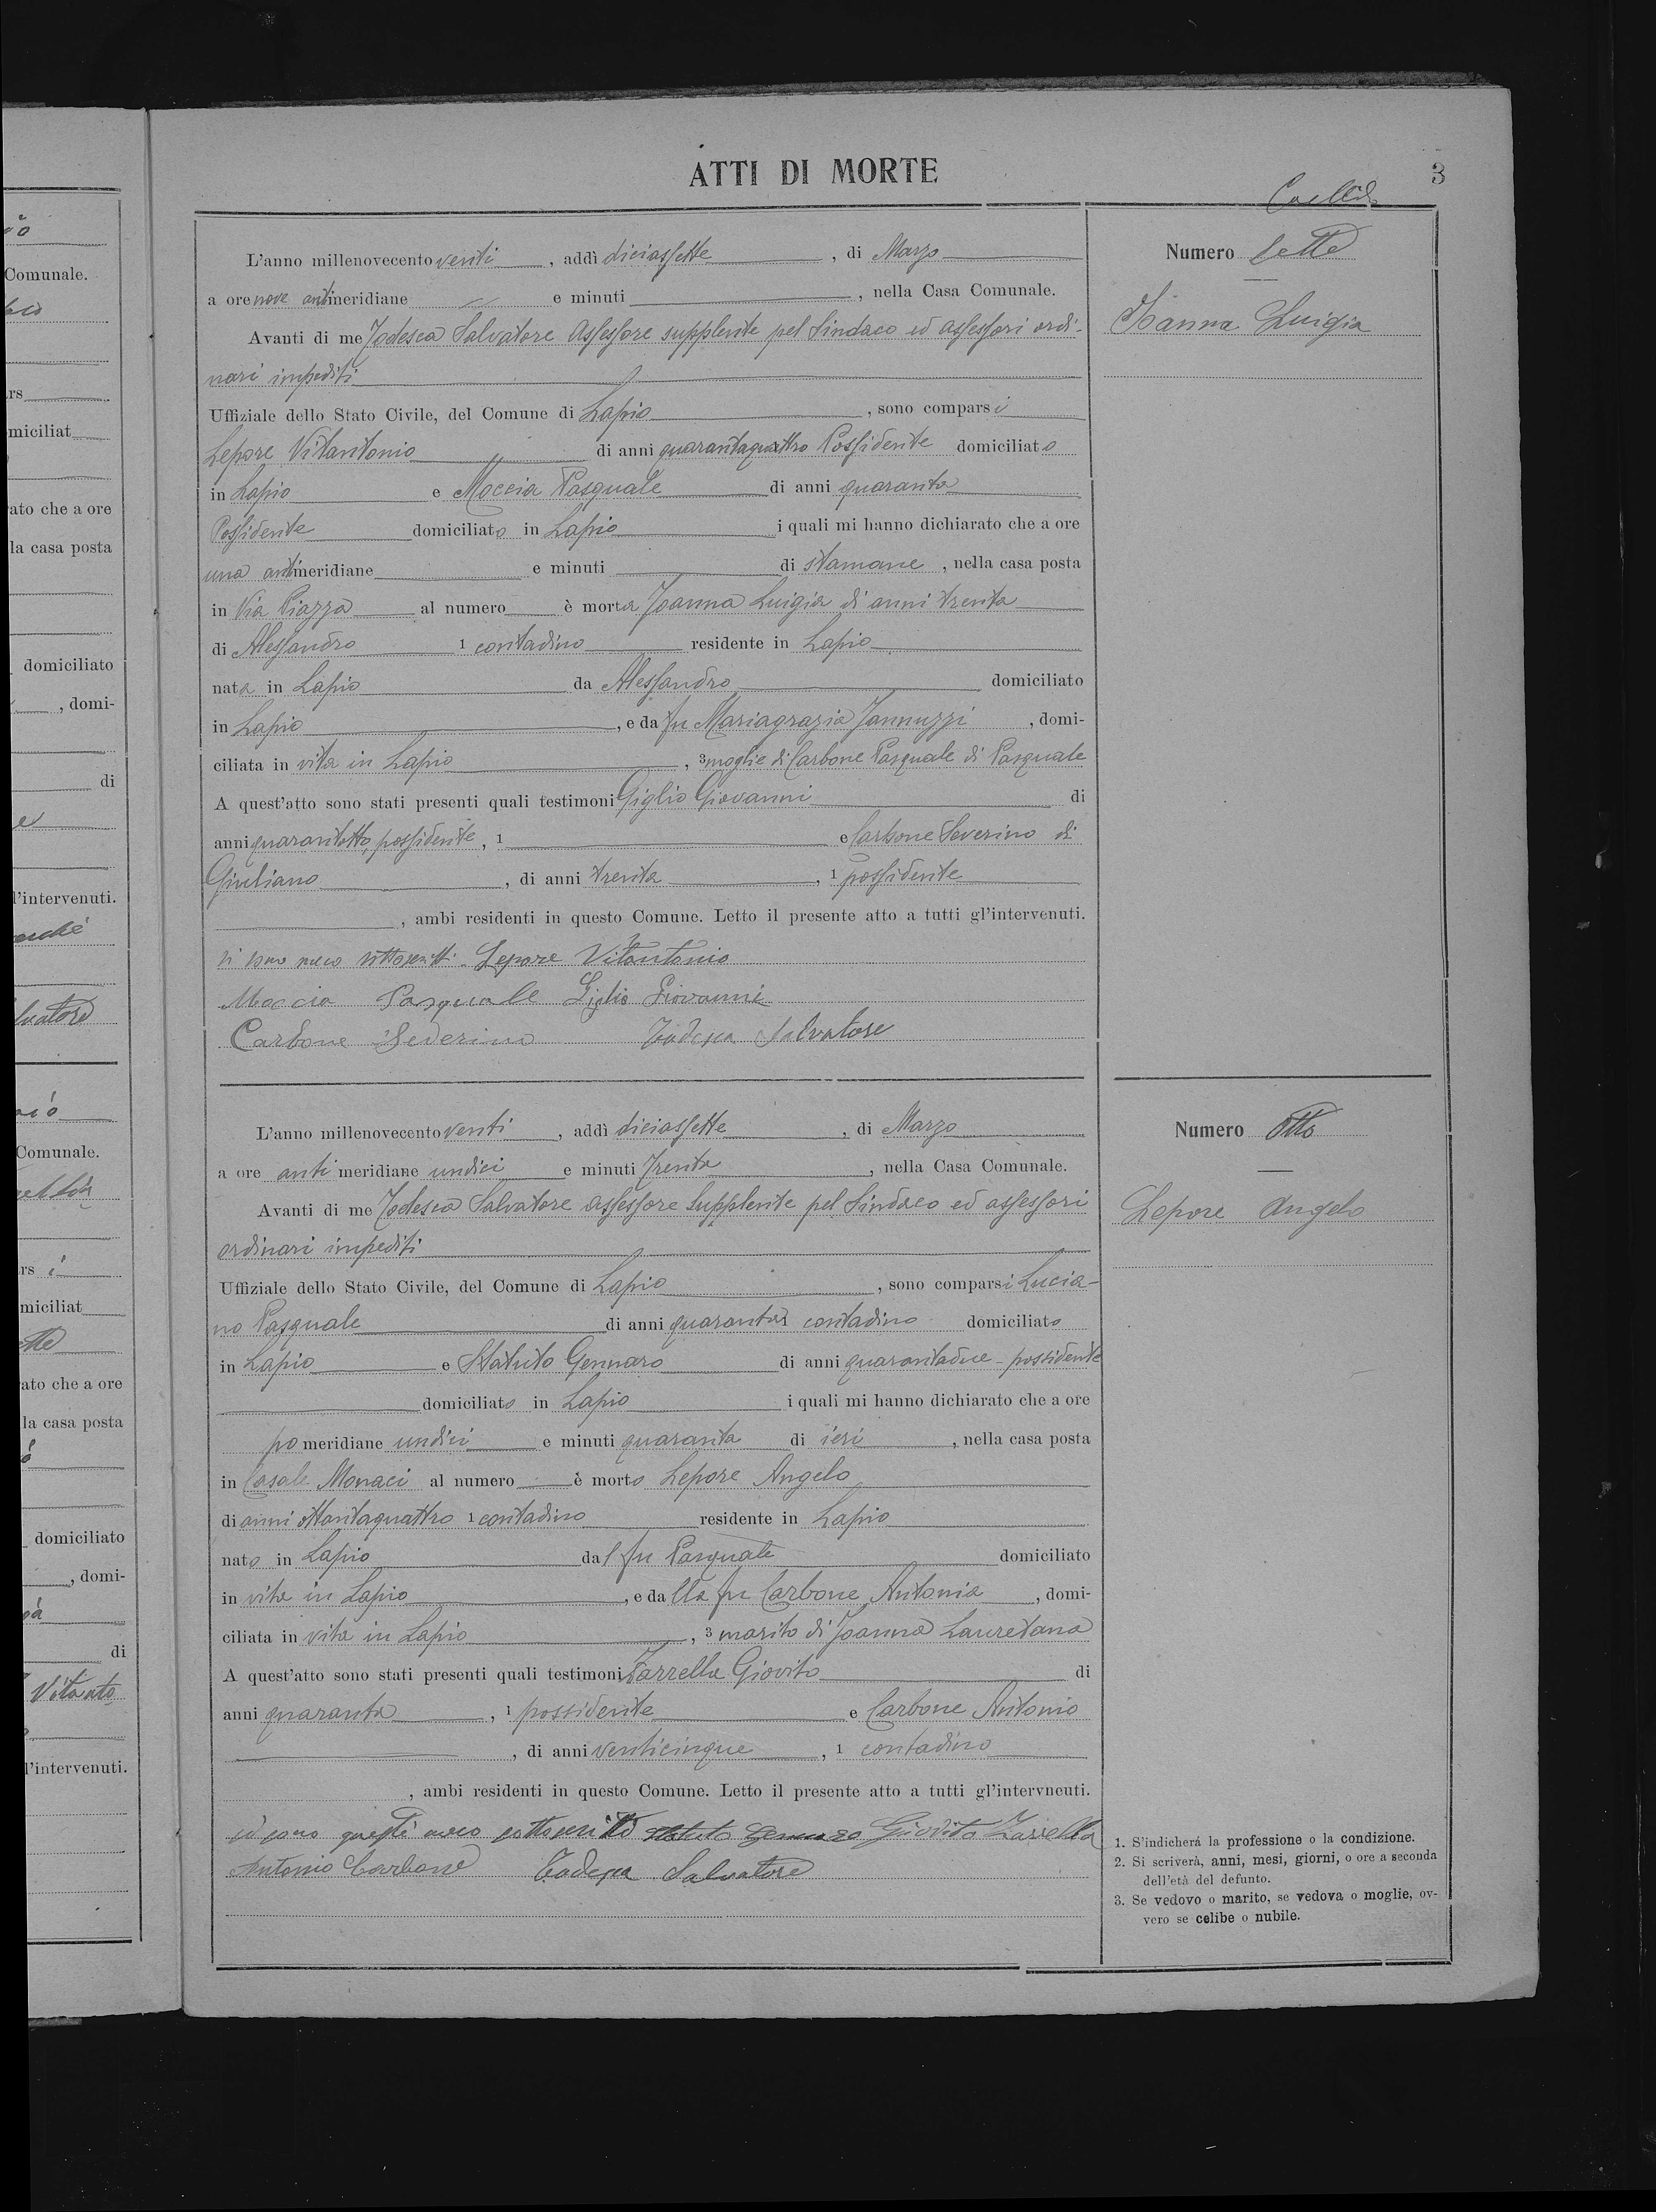 ATTI DI MORTE
3
L'anno millenovecento venti, addì diciassette, di Marzo
a ore nove antimeridiane e minuti, nella Casa Comunale.
Avanti di me Todesca Salvatore Assessore supplente pel Sindaco ed assessori ordi-
nari impediti
Uffiziale dello Stato Civile, del Comune di Lapio, sono comparsi
Lepore Vitantonio di anni quarantaquattro Possidente domiciliato
in Lapio e Moccia Pasquale di anni quaranta
Possidente domiciliato in Lapio i quali mi hanno dichiarato che a ore
una antimeridiane e minuti di stamane, nella casa posta
in Via Piazza al numero è morta Joanna Luigia di anni trenta
di Alessandro 1 contadino residente in Lapio
nata in Lapio da Alessandro domiciliato
in Lapio, e da fu Mariagrazia Jannuzzi, domi-
ciliata in vita in Lapio, 3 moglie di Carbone Pasquale di Pasquale
A quest'atto sono stati presenti quali testimoni Giglio Giovanni di
anni quarantotto, possidente, 1 e Carbone Severino di
Giuliano, di anni trenta, 1 possidente
, ambi residenti in questo Comune. Letto il presente atto a tutti gl'intervenuti.
si sono meco sottoscritti. Lepore Vitantonio
Moccia Pasquale Giglio Giovanni
Carbone Severino Todesca Salvatore
Numero Sette
Joanna Luigia
L'anno millenovecento venti, addì diciassette, di Marzo
a ore antimeridiane undici e minuti trenta, nella Casa Comunale.
Avanti di me Todesca Salvatore assessore supplente pel Sindaco ed assessori
ordinari impediti
Uffiziale dello Stato Civile, del Comune di Lapio, sono comparsi Lucia-
no Pasquale di anni quaranta contadino domiciliato
in Lapio e Statuto Gennaro di anni quarantadue - possidente
domiciliato in Lapio i quali mi hanno dichiarato che a ore
pomeridiane undici e minuti quaranta di ieri, nella casa posta
in Casale Monaci al numero è morto Lepore Angelo
di anni ottantaquattro 1 contadino residente in Lapio
nato in Lapio dal fu Pasquale domiciliato
in vita in Lapio, e dalla fu Carbone Antonia, domi-
ciliata in vita in Lapio, 3 marito di Joanna Lauretana
A quest'atto sono stati presenti quali testimoni Zarrella Giovito di
anni quaranta, 1 possidente e Carbone Antonio
, di anni venticinque, 1 contadino
, ambi residenti in questo Comune. Letto il presente atto a tutti gl'intervneuti.
si sono questi meco sottoscritti Statuto Gennaro Giovito Zarrella
Antonio Carbone Todesca Salvatore
Numero Otto
Lepore Angelo
1. S'indicherá la professione o la condizione.
2. Si scriverà, anni, mesi, giorni, o ore a seconda
dell'età del defunto.
3. Se vedovo o marito, se vedova o moglie, ov-
vero se celibe o nubile.